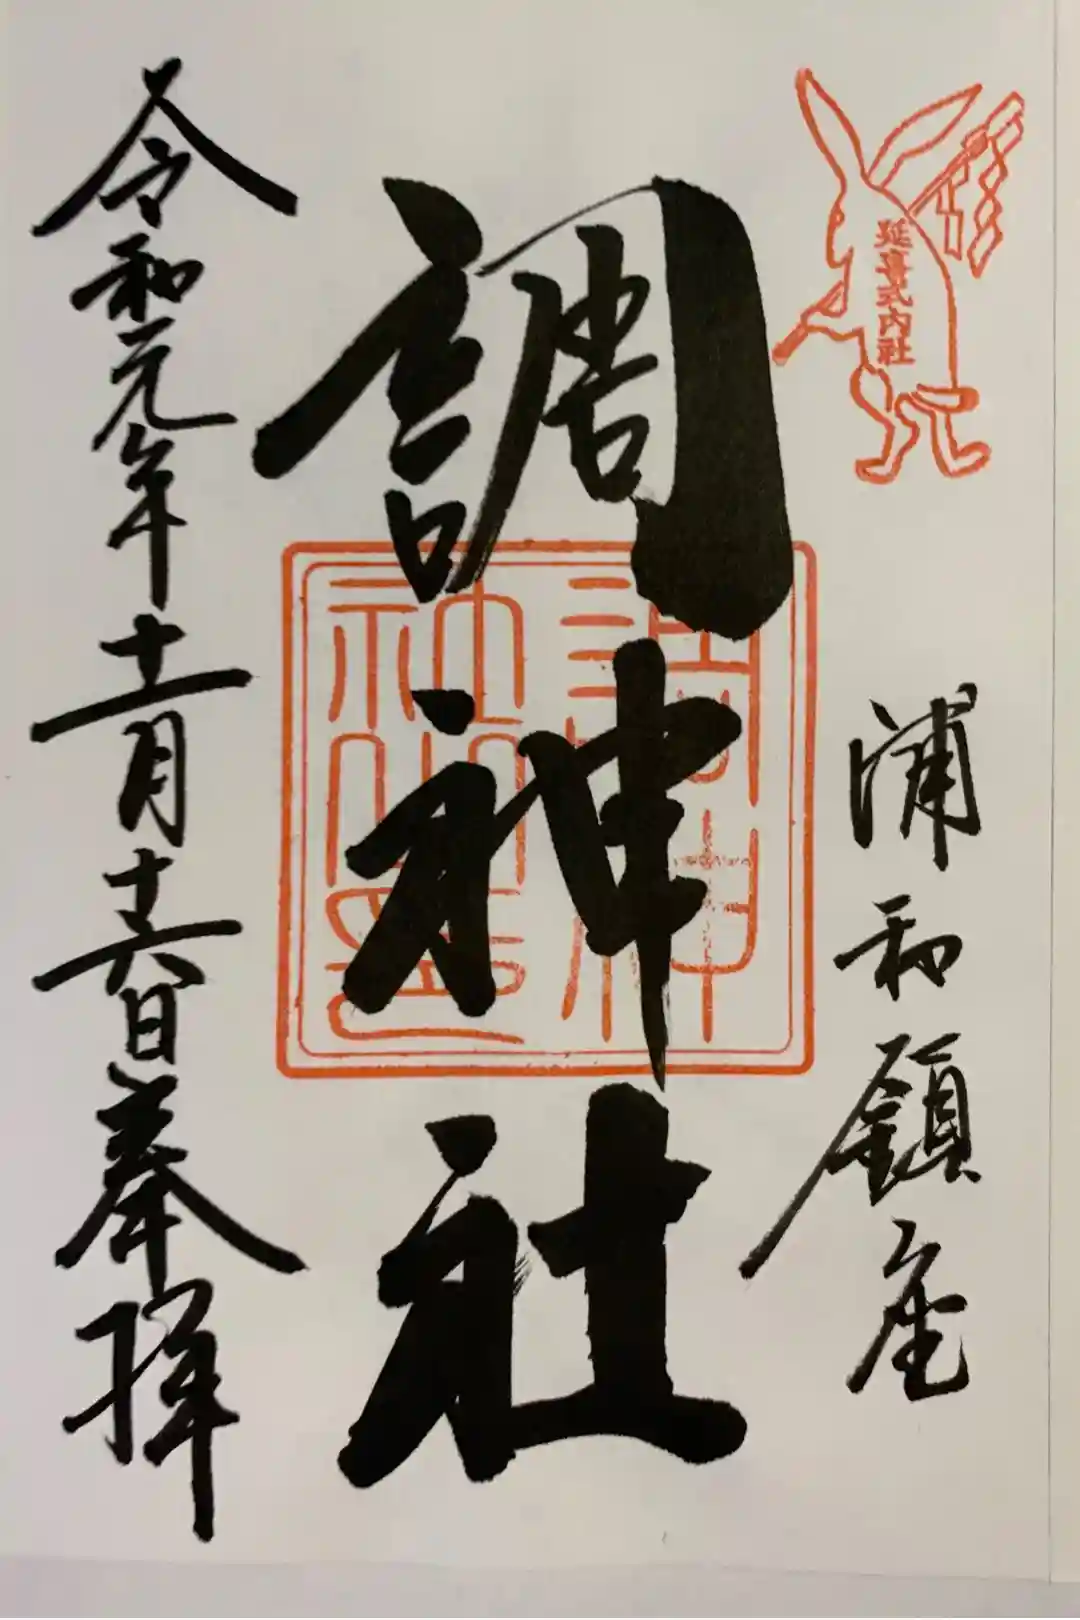 延喜式内社
浦和鎮座
調神社
令和元年十一月十六日奉拝